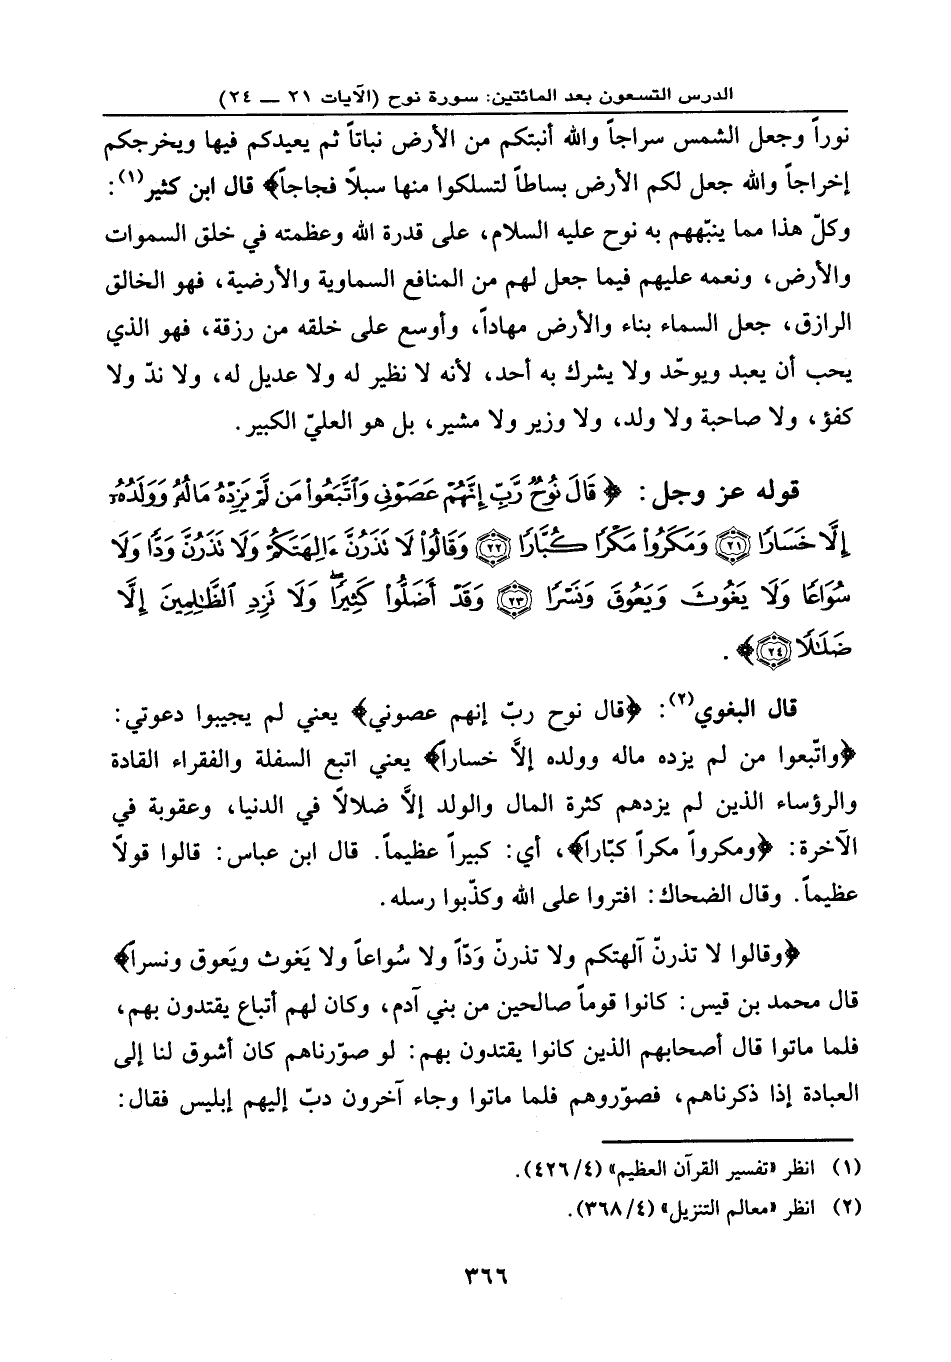 الدرس التسعون بعد المائتين: سورة نوح (الآيات ٢١ ــ ٢٤)
نوراً وجعل الشمس سراجاً والله أنبتكم من الأرض نباتاً ثم يعيدكم فيها ويخرجكم
إخراجاً والله جعل لكم الأرض بساطاً لتسلكوا منها سبلاً فجاجاً﴾ قال ابن كثير(١):
وكلّ هذا مما ينبّههم به نوح عليه السلام، على قدرة الله وعظمته في خلق السموات
والأرض، ونعمه عليهم فيما جعل لهم من المنافع السماوية والأرضية، فهو الخالق
الرازق، جعل السماء بناء والأرض مهاداً، وأوسع على خلقه من رزقة، فهو الذي
يحب أن يعبد ويوحّد ولا يشرك به أحد، لأنه لا نظير له ولا عديل له، ولا ندّ ولا
كفؤ، ولا صاحبة ولا ولد، ولا وزير ولا مشير، بل هو العليّ الكبير.
قوله عز وجل: ﴿قَالَ نُوحٌ رَّبِّ إِنَّهُمْ عَصَوْنِي وَٱتَّبَعُوا۟ مَن لَّمْ يَزِدْهُ مَالُهُۥ وَوَلَدُهُۥٓ
إِلَّا خَسَارًا ﴿٢١﴾ وَمَكَرُوا۟ مَكْرًا كُبَّارًا ﴿٢٢﴾ وَقَالُوا۟ لَا تَذَرُنَّ ءَالِهَتَكُمْ وَلَا تَذَرُنَّ وَدًّا وَلَا
سُوَاعًا وَلَا يَغُوثَ وَيَعُوقَ وَنَسْرًا ﴿٢٣﴾ وَقَدْ أَضَلُّوا۟ كَثِيرًا ۖ وَلَا تَزِدِ ٱلظَّـٰلِمِينَ إِلَّا
ضَلَـٰلًا ﴿٢٤﴾﴾.
قال البغوي(٢): ﴿قال نوح ربّ إنهم عصوني﴾ يعني لم يجيبوا دعوتي:
﴿واتّبعوا من لم يزده ماله وولده إلاَّ خساراً﴾ يعني اتبع السفلة والفقراء القادة
والرؤساء الذين لم يزدهم كثرة المال والولد إلاَّ ضلالاً في الدنيا، وعقوبة في
الآخرة: ﴿ومكرواً مكراً كبّاراً﴾، أي: كبيراً عظيماً. قال ابن عباس: قالوا قولاً
عظيماً. وقال الضحاك: افتروا على الله وكذّبوا رسله.
﴿وقالوا لا تذرنّ آلهتكم ولا تذرنّ وَدّاً ولا سُواعاً ولا يَغوث ويَعوق ونسراً﴾
قال محمد بن قيس: كانوا قوماً صالحين من بني آدم، وكان لهم أتباع يقتدون بهم،
فلما ماتوا قال أصحابهم الذين كانوا يقتدون بهم: لو صوّرناهم كان أشوق لنا إلى
العبادة إذا ذكرناهم، فصوّروهم فلما ماتوا وجاء آخرون دبّ إليهم إبليس فقال:
(١) انظر «تفسير القرآن العظيم» (٤/ ٤٢٦).
(٢) انظر «معالم التنزيل» (٤/ ٣٦٨).
٣٦٦